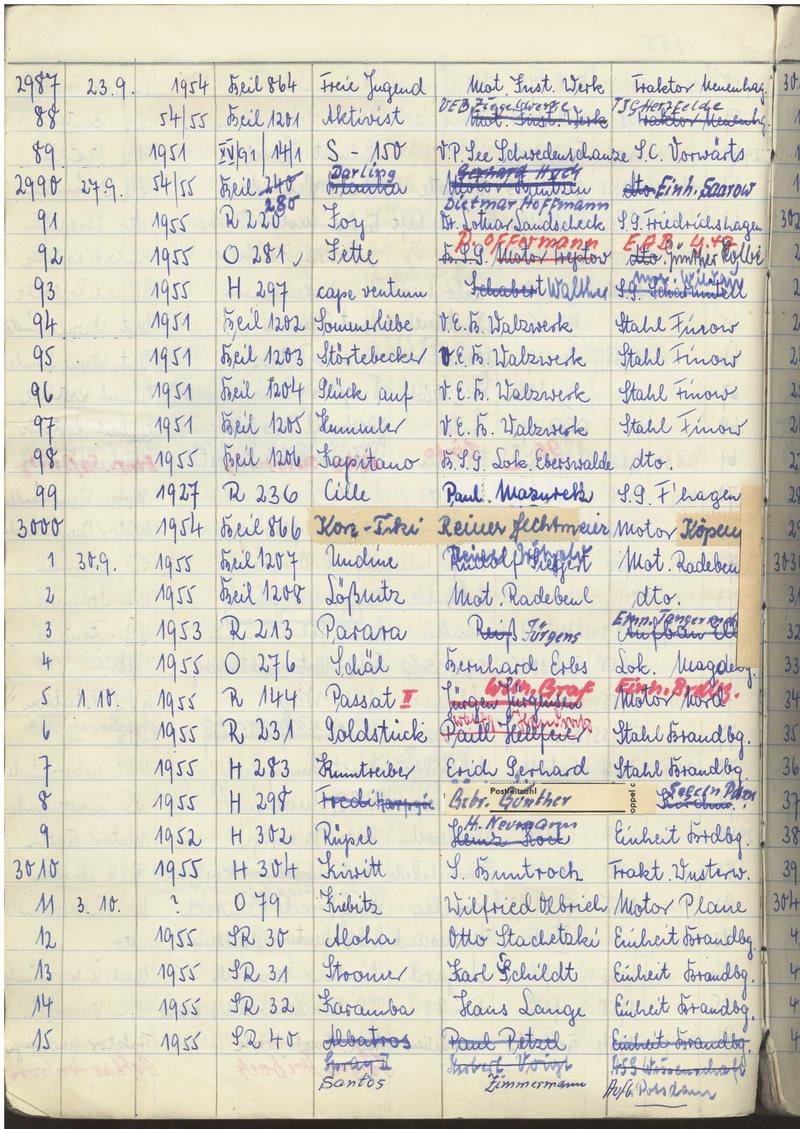 2987 23.9. 1954 Keil 864 Freie Jugend Mot. Inst. Werk Traktor Neuenhag.
VEB Ziegelwerke TSG Herzfelde
88 54/55 Keil 1201 Aktivist Mot. Inst. Werk Traktor Neuenhg.
89 1951 IV/91/14/1 S - 150 V.P. See Schwedenschanze S.C. Vorwärts
Darling Gerhard Huch
2990 27.9. 54/55 Keil 240 dto. Einh. Saarow
280 Dietmar Hoffmann
91 1955 R 220 Joy Dr. Lothar Landscheck S.G. Friedrichshagen
D. Offermann E.A.B.
92 1955 O 281 Fette B.S.G. Motor Treptow dto. Günther
93 1955 H 297 cape ventum Schubert Walther S.G. Scharmützell
94 1951 Keil 1202 Sommerliebe V.E.B. Walzwerk Stahl Finow
95 1951 Keil 1203 Störtebecker V.E.B. Walzwerk Stahl Finow
96 1951 Keil 1204 Glück auf V.E.B. Walzwerk Stahl Finow
97 1951 Keil 1205 Hummler V.E.B. Walzwerk Stahl Finow
98 1955 Keil 1206 Kapitano B.S.G. Lok. Eberswalde dto.
99 1927 R 236 Cille Paul. Mazurek S.G. F'hagen
3000 1954 Keil 866 Kon-Tiki Reiner Fechtmeier Motor Köpen
1 30.9. 1955 Keil 1207 Undine Rudolf Siegert Mot. Radebeu
2 1955 Keil 1208 Lößnitz Mot. Radebeul dto.
Emp. Tangermünd
3 1953 R 213 Parara Reiß Jürgens Aufbau
4 1955 O 276 Schäl Bernhard Erbs Lok. Magdebg.
Wolfh. Graf Einh. Brdbg.
5 1.10. 1955 R 144 Passat II Jürgen Jürgensen Motor Nord
6 1955 R 231 Goldstück Paul Stahl Brandbg.
7 1955 H 283 Kunntreiber Erich Gerhard Stahl Brandbg.
Postleitzahl
8 1955 H 298 Fredi Harpyie Gebr. Günther Segeln
H. Neumann
9 1952 H 302 Rüpel Heinz Koch Einheit Brdbg.
3010 1955 H 304 Kiwitt S. Buntrock Trakt. Wusterw.
11 3.10. ? O 79 Kiebitz Wilfried Olbrich Motor Plaue
12 1955 SR 30 Aloha Otto Stachetzki Einheit Brandbg.
13 1955 SR 31 Stromer Karl Schildt Einheit Brandbg.
14 1955 SR 32 Karamba Hans Lange Einheit Brandbg.
15 1955 SR 40 Albatros Paul Petzel Einheit Brandbg.
Spray II Hubert Voigt HSG Wissenschaft
Santos Zimmermann Potsdam